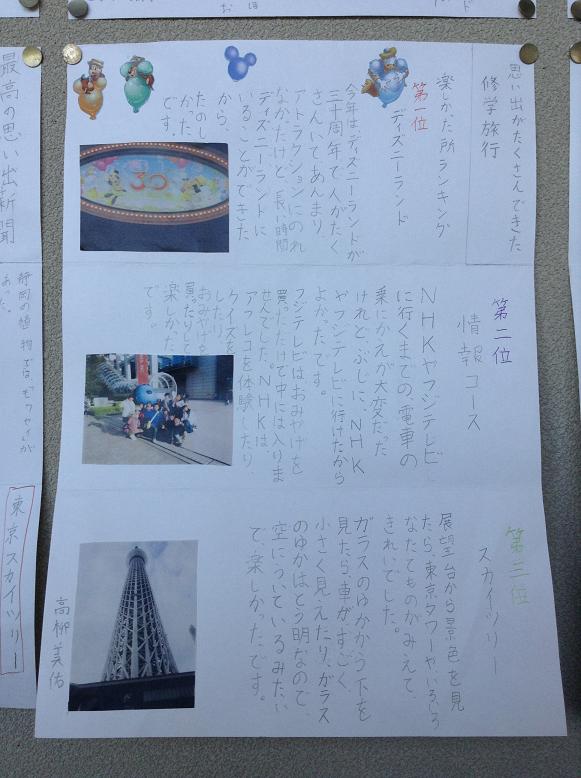 思い出がたくさんできた
修学旅行
楽しかった所ランキング
第一位
ディズニーランド
今年はディズニーランドが
三十周年で人がたく
さんいてあんまり
アトラクションにのれ
なかたけど、長い時間
ディズニーランドに
いることができた
から、
たのし
かった
です。
30
第二位
情報コース
NHKやフジテレビ
に行くまでの、電車の
乗にかえが大変だった
けれど、ぶじに、NHK
やフジテレビに行けたから
よかたです。
フジテレビはおみやげを
買っただけで中には入りま
せんでした。NHKは
アフレコを体験したり、
クイズを
したり
おみやげを
買ったりして
楽しかった
です。
第三位
スカイツリー
展望台から景色を見
たら、東京タワーや、いろいろ
なたてものがみえて、
きれいでした。
ガラスのゆかから下を
見たら車がすごく、
小さく見えたり、ガラス
のゆかはとう明なので、
空にういているみたい
で、楽しかったです。
高柳美佑
最高の思い出新聞
静岡の植物では、モクセイが
あった。
東京スカイツリー